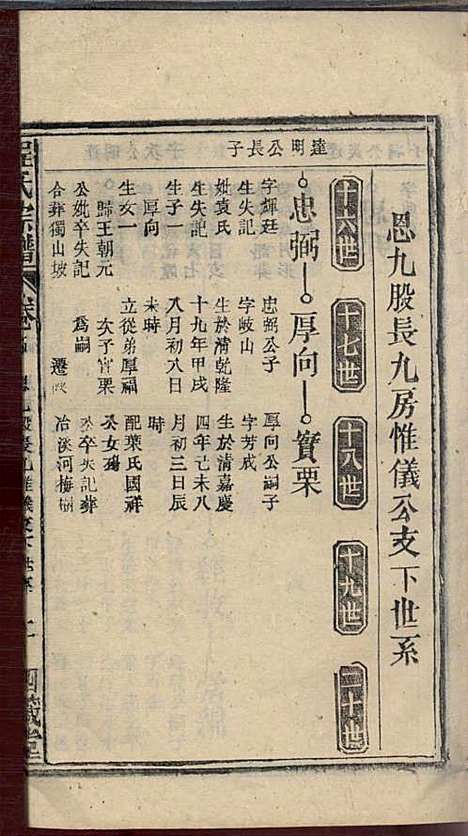 恩九股長九房惟儀公支下世系
十六世
十七世
十八世
十九世
二十世
達明公長子
忠弼
厚向
實栗
字輝廷
生失記
姓袁氏
生失記
生子一
厚向
生女一
歸王朝元
公妣卒失記
合葬獨山坡
忠弼公子
字岐山
生於清乾隆
十九年甲戌
八月初八日
未時
立從弟厚福
次子實栗
爲嗣
遷
厚向公嗣子
字芳成
生於清嘉慶
四年己未八
月初三日辰
時
配葉氏國祥
公女殤
卒失記葬
冶溪河梅樹
程氏宗譜